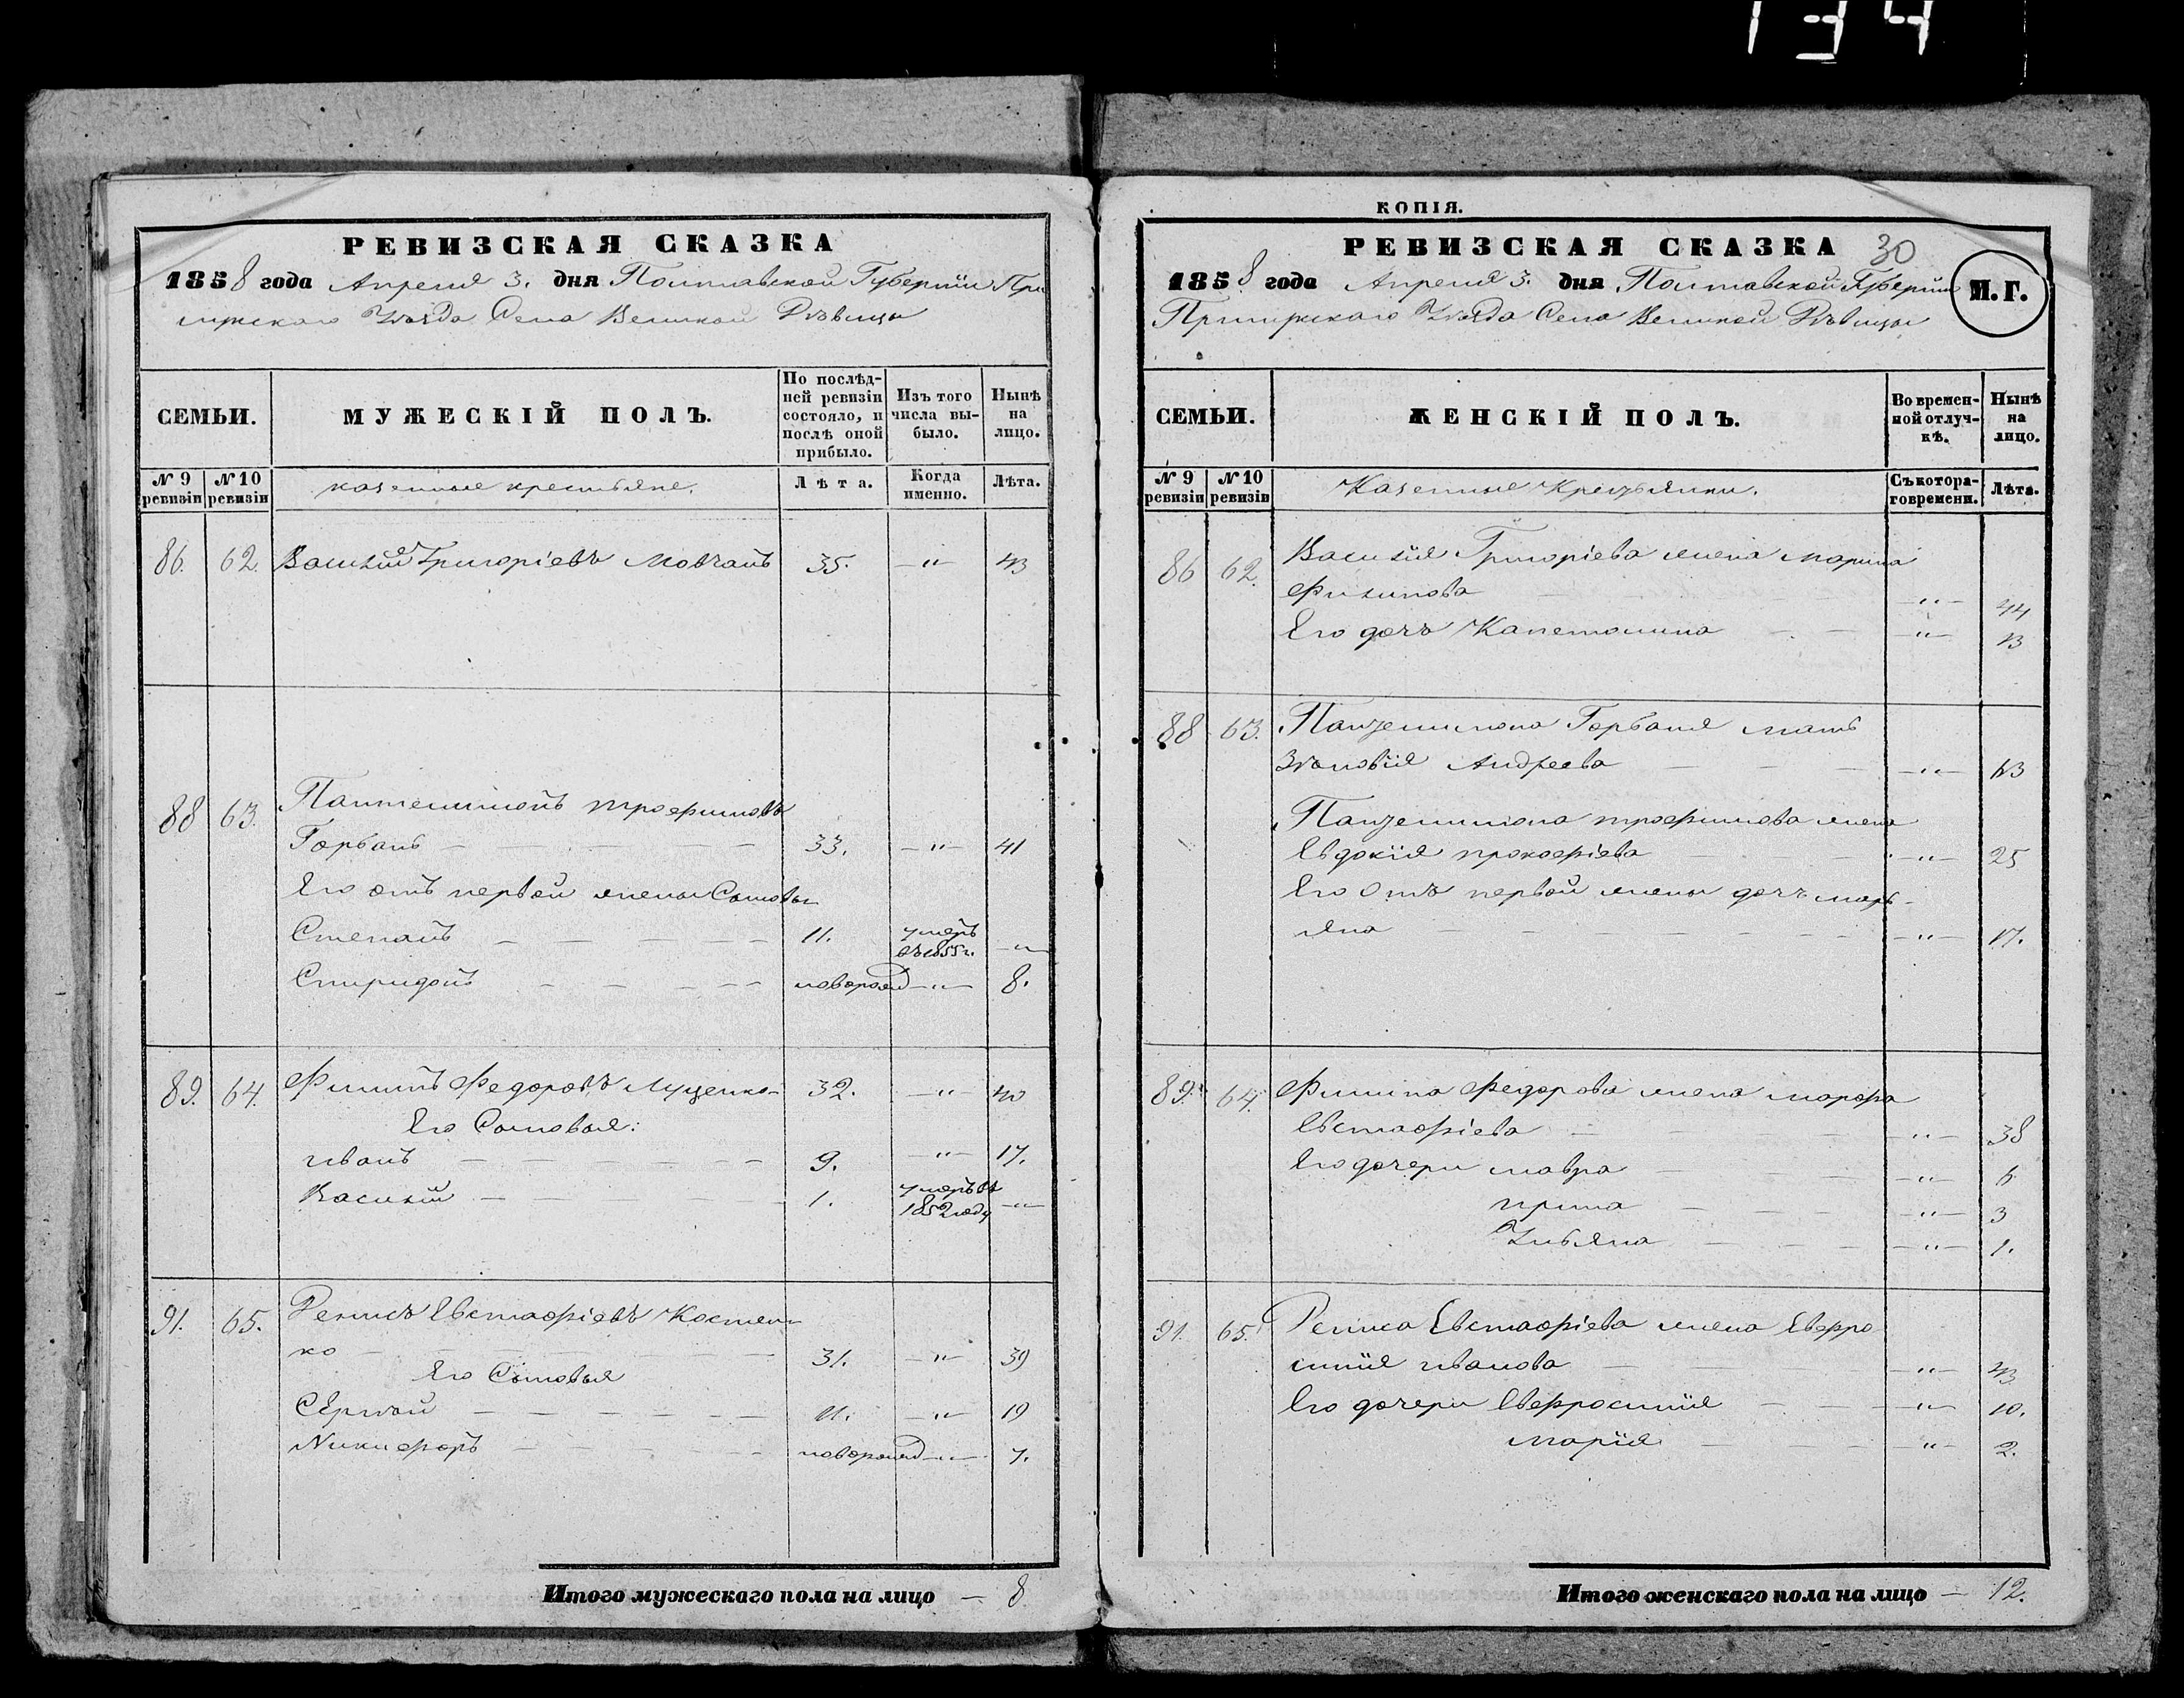 134
РЕВИЗСКАЯ СКАЗКА
1858 года Апреля 3. дня Полтавской Губерніи При
лужскаго Уѣзда Села Великой Дѣвицы
СЕМЬИ.
МУЖЕСКІЙ ПОЛЪ.
По послѣд-
ней ревизіи
состояло, и
послѣ оной
прибыло.
Изъ того
числа вы-
было.
Нынѣ
на
лицо.
№ 9
ревизіи
№ 10
ревизіи
казенные крестьяне.
Лѣта.
Когда
именно.
Лѣта.
86. 62. Василій Григоріевъ Мовчанъ 35. —"— 43
88 63. Пантелимонъ трофимовъ
Горбань 33. —"— 41
Его отъ первой жены Сыновья
Степанъ 11. умеръ
въ 1855 г. —"—
Спиридонъ новорожд —"— 8.
89. 64. Филипъ Федоровъ Луценко 32. —"— 40
Его Сыновья:
иванъ 9. —"— 17.
Василій 1. умеръ въ
1852 году —"—
91. 65. Денисъ Евстафіевъ Костен-
ко 31. —"— 39
Его Сыновья
Сергѣй 11. —"— 19
Никифоръ новорожд —"— 7.
Итого мужескаго пола на лицо — 8
КОПІЯ.
РЕВИЗСКАЯ СКАЗКА 30
1858 года Апреля 3. дня Полтавской Губерніи
Прилужскаго Уѣзда Села Великой Дѣвицы
М. Г.
СЕМЬИ.
ЖЕНСКІЙ ПОЛЪ.
Во времен-
ной отлуч-
кѣ.
Нынѣ
на
лицо.
№ 9
ревизіи
№ 10
ревизіи
Казенные Крестьянки.
Съ котора-
го времени.
Лѣта.
86 62. Василія Григоріева жена марина
Филипова —"— 44
Его дочь Капетолина —"— 13
88 63. Пантелимона Горбаня мать
Зѣновія Андреева —"— 63
Пантелимона трофимова жена
Евдокія прокофіева —"— 25
Его Отъ первой жены дочь марь-
яна —"— 17.
89. 64. Филипа Федорова жена марфа
Евстафіева —"— 38
Его дочери мавра —"— 6
ирина —"— 3
Ульяна —"— 1.
91. 65. Дениса Евстафіева жена Ефро
синія иванова —"— 43
Его дочери Ефросинія —"— 10.
марія —"— 2.
Итого женскаго пола на лицо — 12.